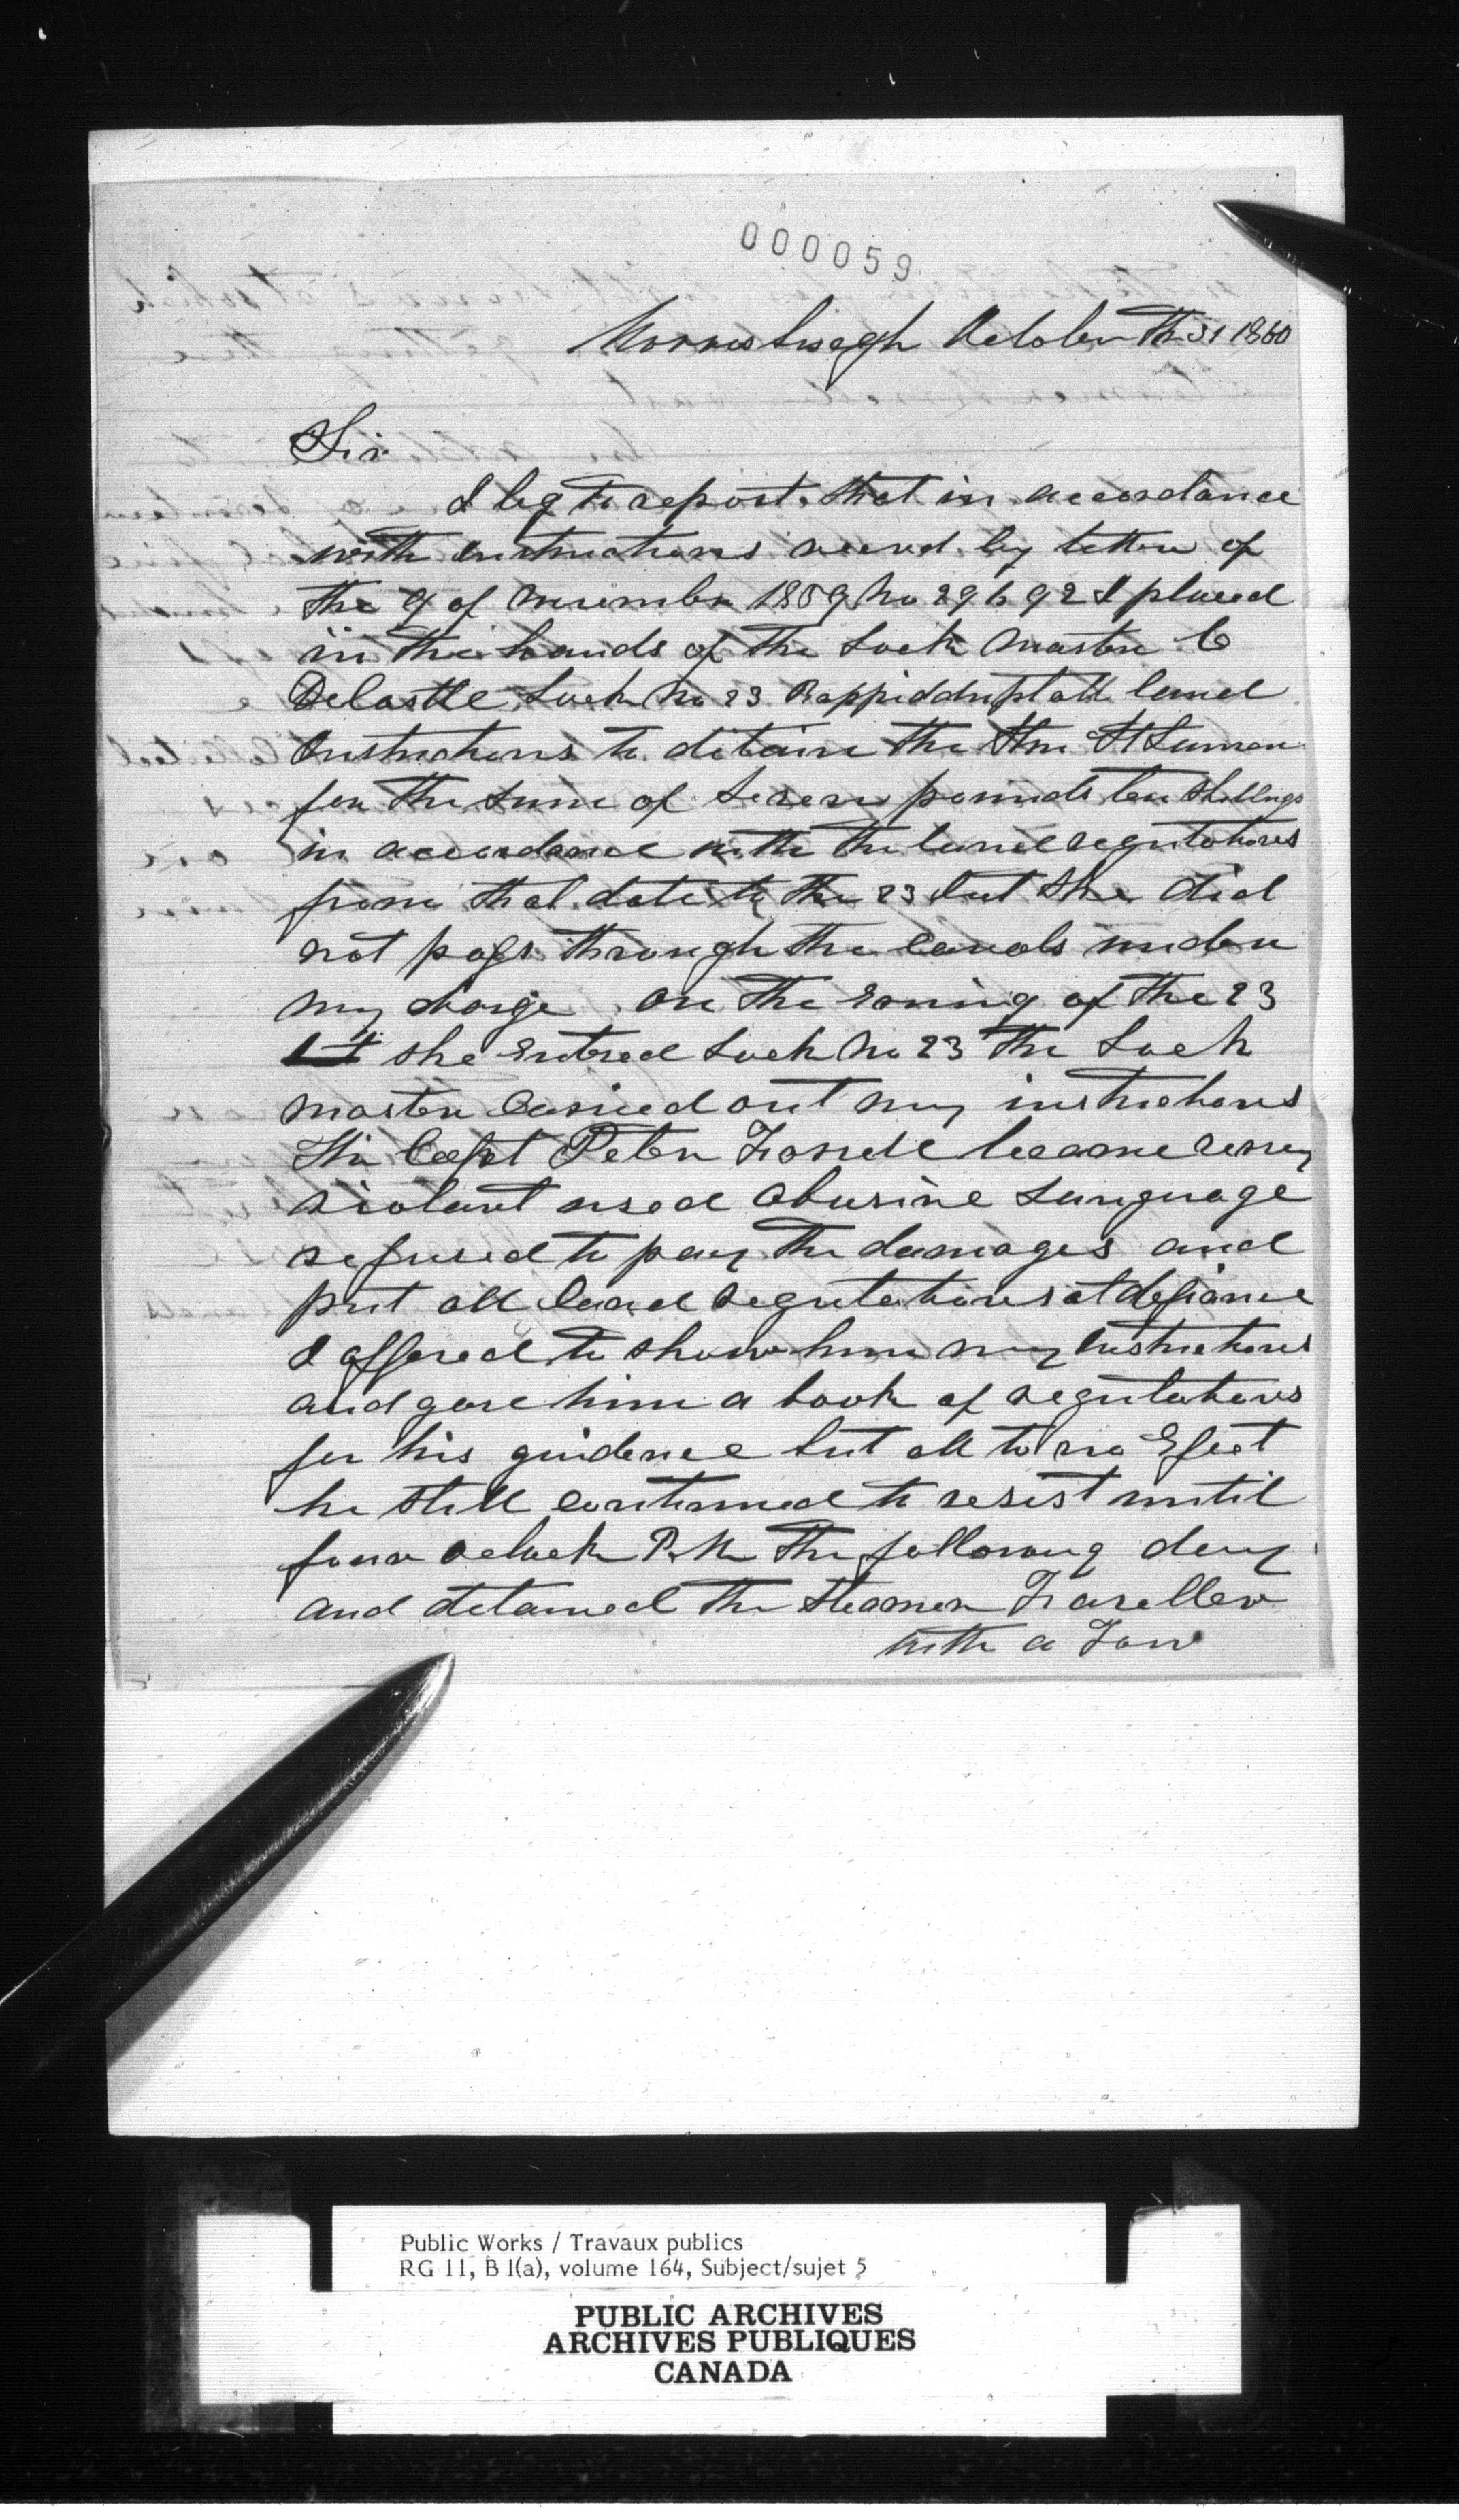 000059
Morrisburgh October th 31 1860
Sir
I beg to report that in accordance
with instructions recvd by letter of
the 9 of November 1859 No 29692 I placed
in the hands of the Lock Master C
Delastle Lock No 23 Rappidduplatt Canal
Instructions to detain the Stm St
for the sum of Seven pounds ten Shillings
in accordance with the Canal regulations
from that date to the 23 but She did
not pass through the canals under
my charge on the Evning of the 23
she Entered Lock No 23 The Lock
master Carried out my instructions
The Capt Peter became verey
violent used abusive Language
refused to pay the damages and
put all Canal regulations at defiance
I offered to show him my Instructions
and gave him a book of regulations
for his guidence but all to no Efect
he still continued to resist until
four oclock P.M the following day
and detained the Steamer Traveller
with a Tow
Public Works / Travaux publics
RG 11, B 1(a), volume 164, Subject/sujet 5
PUBLIC ARCHIVES
ARCHIVES PUBLIQUES
CANADA